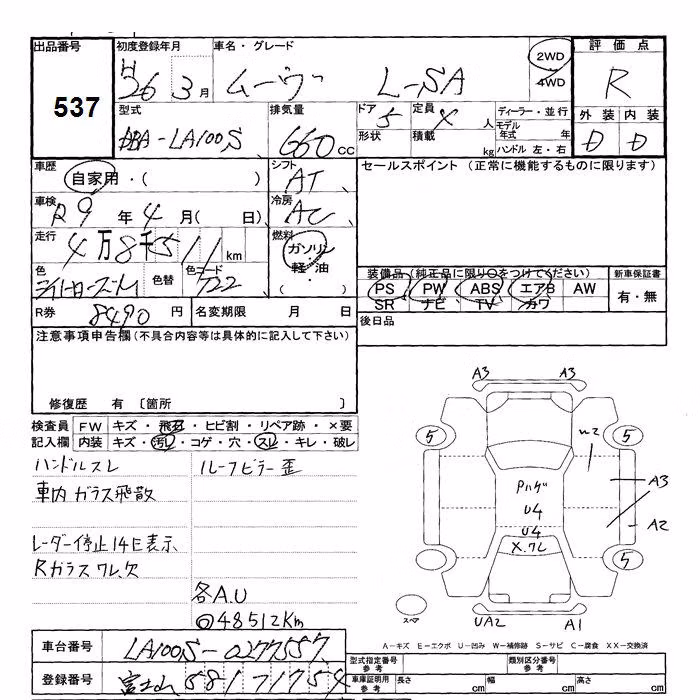 出品番号 537
初度登録年月 H26 3月
車名・グレード ムーヴ L-SA
2WD
4WD
評価点 R
型式 DBA-LA100S
排気量 660cc
ドア 5 定員 4人
形状 積載 kg
ディーラー・並行
モデル年式 年
ハンドル 左・右
外装 内装
D D
車歴 自家用・( )
シフト AT
セールスポイント (正常に機能するものに限ります)
車検 R9年4月( 日)
冷房 AC
走行 4万8千511km
燃料 ガソリン・軽油・( )
色 色替 色コード T22
装備品(純正品に限り○をつけてください)
PS PW ABS エアB AW
SR ナビ TV カワ
新車保証書 有・無
R券 8490円
名変期限 月 日
後日品
注意事項申告欄(不具合内容等は具体的に記入して下さい)
修復歴 有 〔箇所 〕
検査員記入欄
FW キズ・飛石・ヒビ割・リペア跡・×要
内装 キズ・汚レ・コゲ・穴・スレ・キレ・破レ
ハンドルスレ ルーフピラー歪
車内ガラス飛散
レーダー停止14E表示
Rガラスワレ、欠
各A.U
◎48512Km
A3 A3
5 5
A3
Pハゲ
U4
U4
X.ワレ
A2
5
スペア
UA2 A1
A-キズ E-エクボ U-凹み W-補修跡 S-サビ C-腐食 XX-交換済
車台番号 LA100S-0277557
型式指定番号 参考
類別区分番号 参考
登録番号 富士山 581 71754
車庫証明用 参考 長さ cm 幅 cm 高さ cm